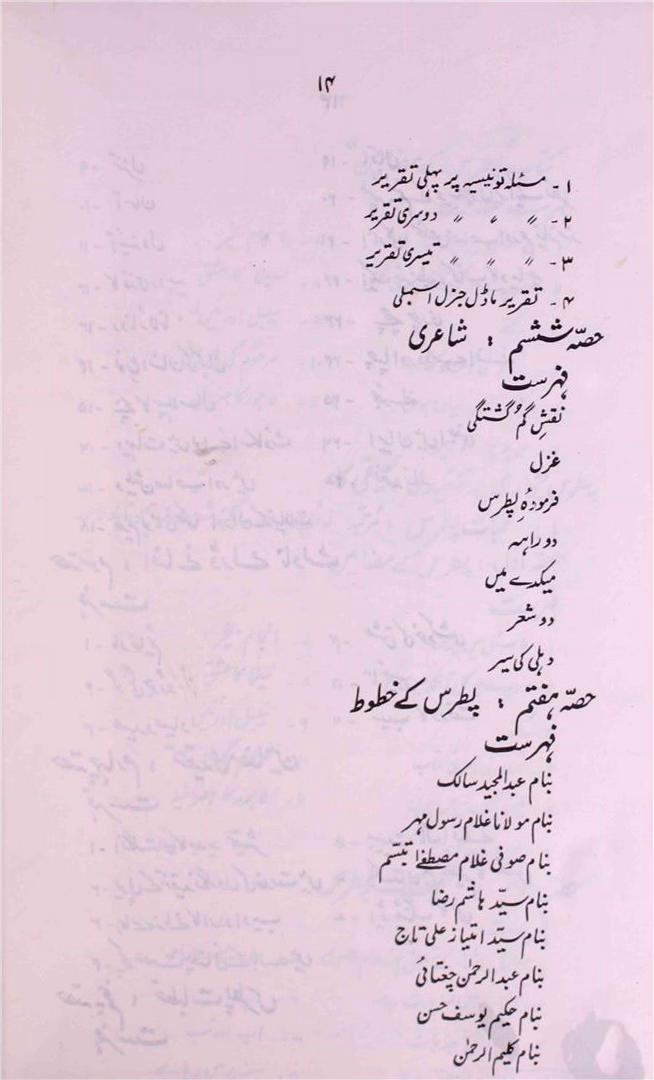 ۱۴
۱- مسئلہ تونیسیہ پر پہلی تقریر
۲- " " " دوسری تقریر
۳- " " " تیسری تقریر
۴- تقریر ماڈل جنرل اسمبلی
حصہ ششم : شاعری
فہرست
نقشِ گم گشتگی
غزل
فرمودۂ پطرس
دوراہہ
میکدے میں
دو شعر
دہلی کی سیر
حصہ ہفتم : پطرس کے خطوط
فہرست
بنام عبدالمجید سالک
بنام مولانا غلام رسول مہر
بنام صوفی غلام مصطفےٰ تبسّم
بنام سیّد ہاشم رضا
بنام سیّد امتیاز علی تاج
بنام عبدالرحمٰن چغتائی
بنام حکیم یوسف حسن
بنام کلیم الرحمٰن